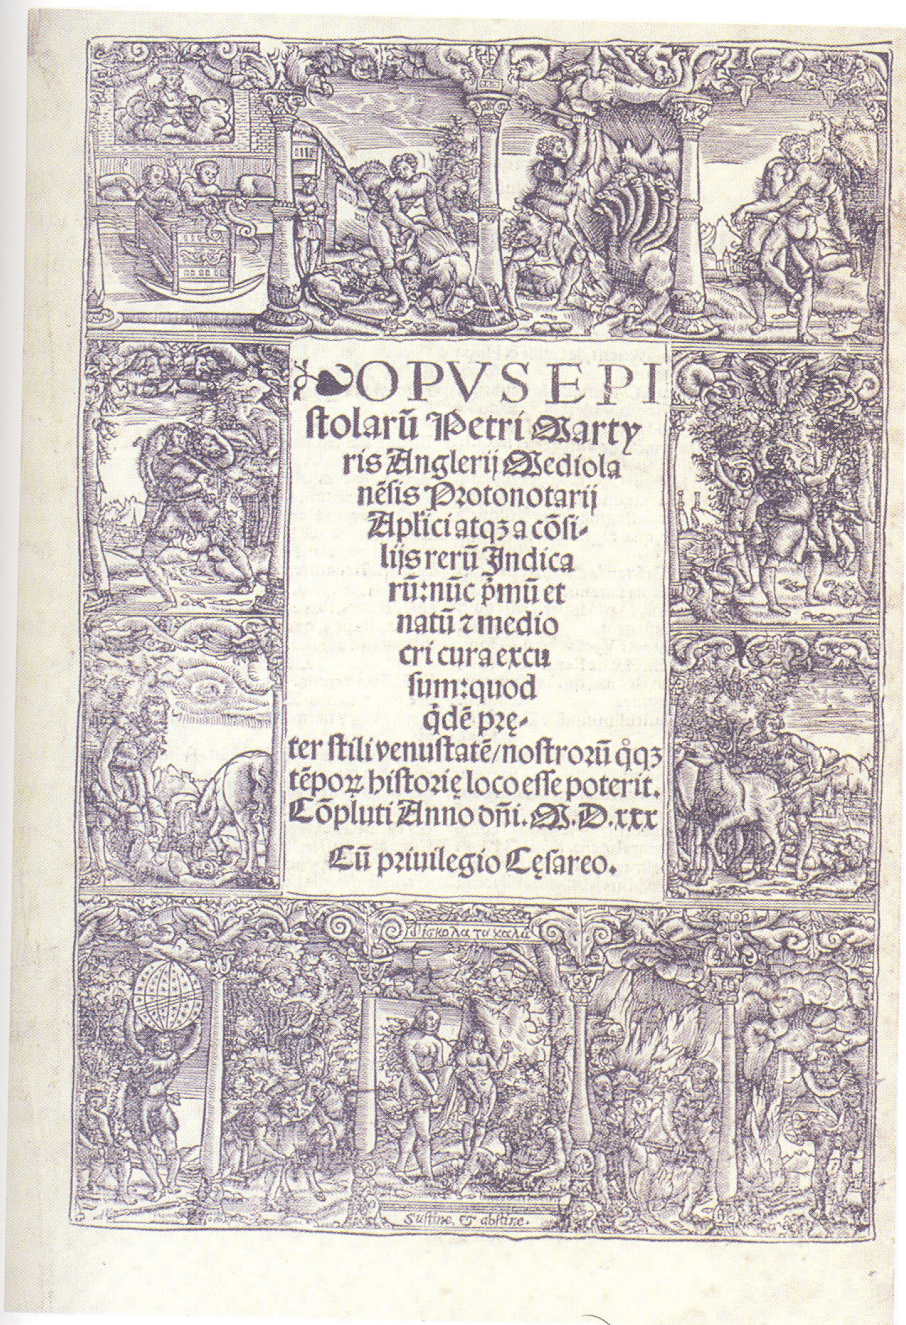 OPVS EPI
stolarū Petri Marty
ris Anglerij Mediola
nēsis Protonotarij
Aplici atqꝫ a cōsi-
lijs rerū Indica
rū: nūc p̄mū et
natū ⁊ medio
cri cura excu
sum: quod
q̄dē prę-
ter stili venustatē/nostrorū qͦqꝫ
tēpoꝝ historię loco esse poterit.
Cōpluti Anno dn̄i. M.D.xxx
Cū priuilegio Cęsareo.
δίσκολα τὰ καλὰ
Sustine, & abstine.